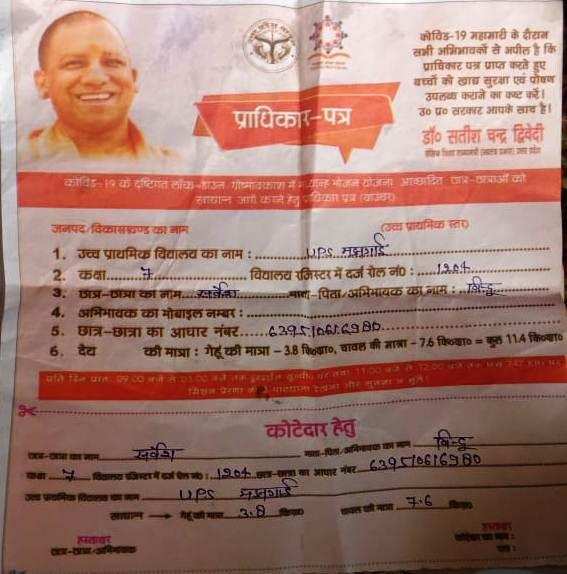 कोविड-19 महामारी के दौरान
सभी अभिभावकों से अपील है कि
प्राधिकार पत्र प्राप्त करते हुए
बच्चों को खाद्य सुरक्षा एवं पोषण
उपलब्ध कराने का कष्ट करें।
उ० प्र० सरकार आपके साथ है।
प्राधिकार-पत्र
डॉ० सतीश चन्द्र द्विवेदी
कोविड-19 के दृष्टिगत लॉक-डाउन ग्रीष्मावकाश में मध्यान्ह भोजन योजना आच्छादित छात्र-छात्राओं को
खाद्यान्न जारी करने हेतु प्राधिकार पत्र (वाउचर)
जनपद/विकासखण्ड का नाम (उच्च प्राथमिक स्तर)
1. उच्च प्राथमिक विद्यालय का नाम : UPS
2. कक्षा 7 विद्यालय रजिस्टर में दर्ज रोल नं० : 1204
3. छात्र-छात्रा का नाम सर्वेश माता-पिता/अभिभावक का नाम : बिन्दु
4. अभिभावक का मोबाइल नम्बर :
5. छात्र-छात्रा का आधार नंबर 639510616980
6. देय की मात्रा : गेहूं की मात्रा - 3.8 कि०ग्रा०, चावल की मात्रा - 7.6 कि०ग्रा० = कुल 11.4 कि०ग्रा०
कोटेदार हेतु
छात्र-छात्रा का नाम सर्वेश माता-पिता/अभिभावक का नाम बिन्दु
कक्षा 7 विद्यालय रजिस्टर में दर्ज रोल नं० : 1204 छात्र-छात्रा का आधार नंबर 639510616980
उच्च प्राथमिक विद्यालय का नाम UPS
खाद्यान्न → गेहूं की मात्रा 3.8 कि०ग्रा० चावल की मात्रा 7.6 कि०ग्रा०
हस्ताक्षर हस्ताक्षर
छात्र-छात्रा/अभिभावक कोटेदार का नाम :